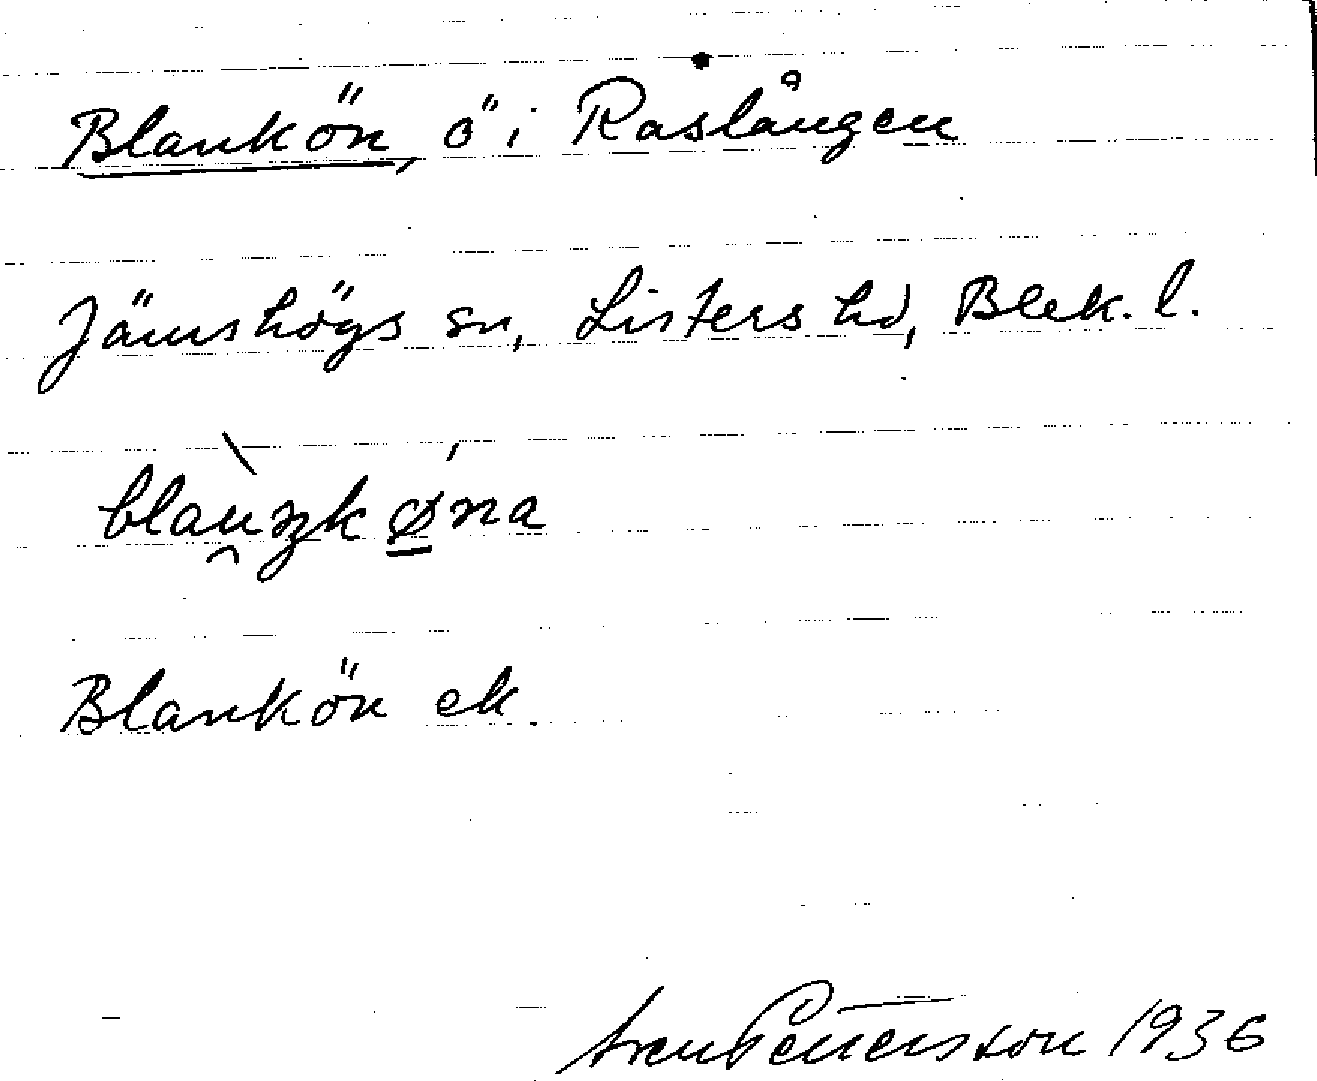 Blankön, ö i Raslången
Jämshögs sn, Listers hd, Blek. l.
Blankön ek.
Pettersson 1936